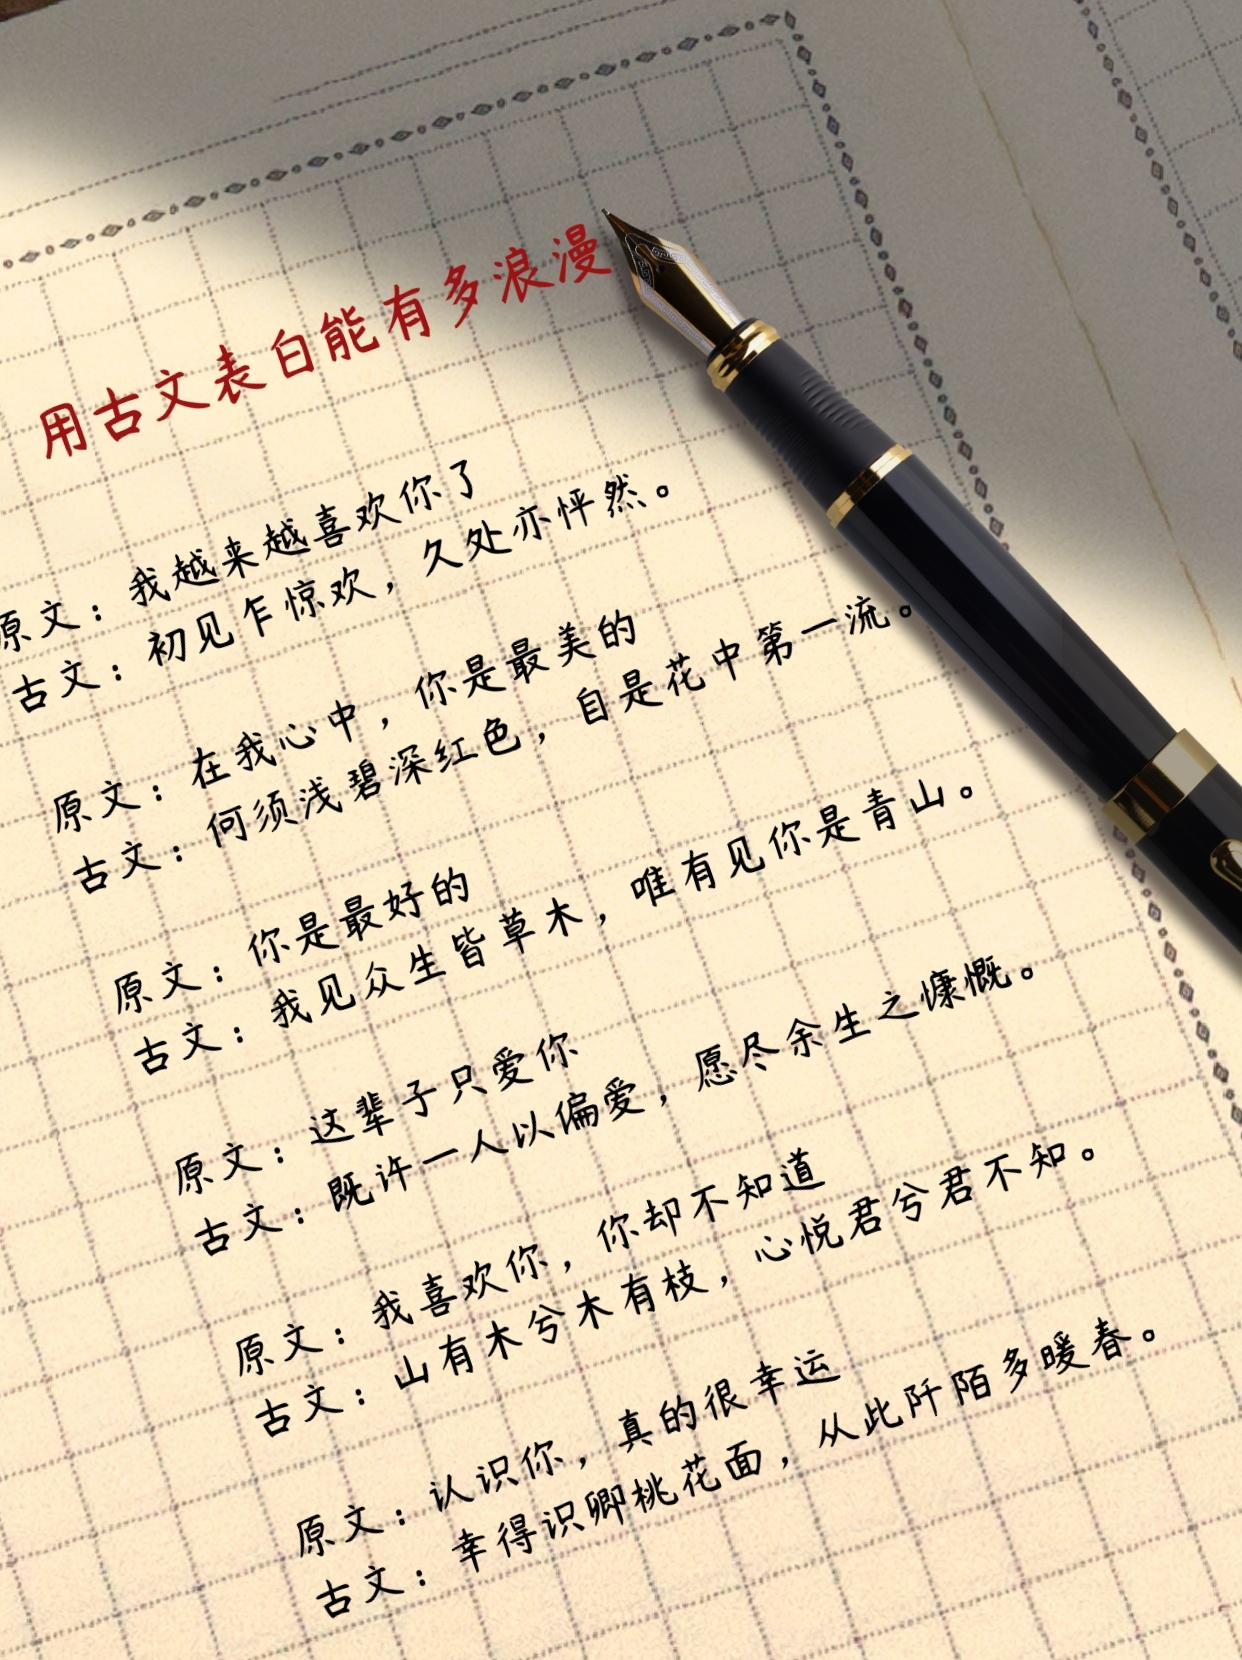 用古文表白能有多浪漫
原文：我越来越喜欢你了
古文：初见乍惊欢，久处亦怦然。
原文：在我心中，你是最美的
古文：何须浅碧深红色，自是花中第一流。
原文：你是最好的
古文：我见众生皆草木，唯有见你是青山。
原文：这辈子只爱你
古文：既许一人以偏爱，愿尽余生之慷慨。
原文：我喜欢你，你却不知道
古文：山有木兮木有枝，心悦君兮君不知。
原文：认识你，真的很幸运
古文：幸得识卿桃花面，从此阡陌多暖春。